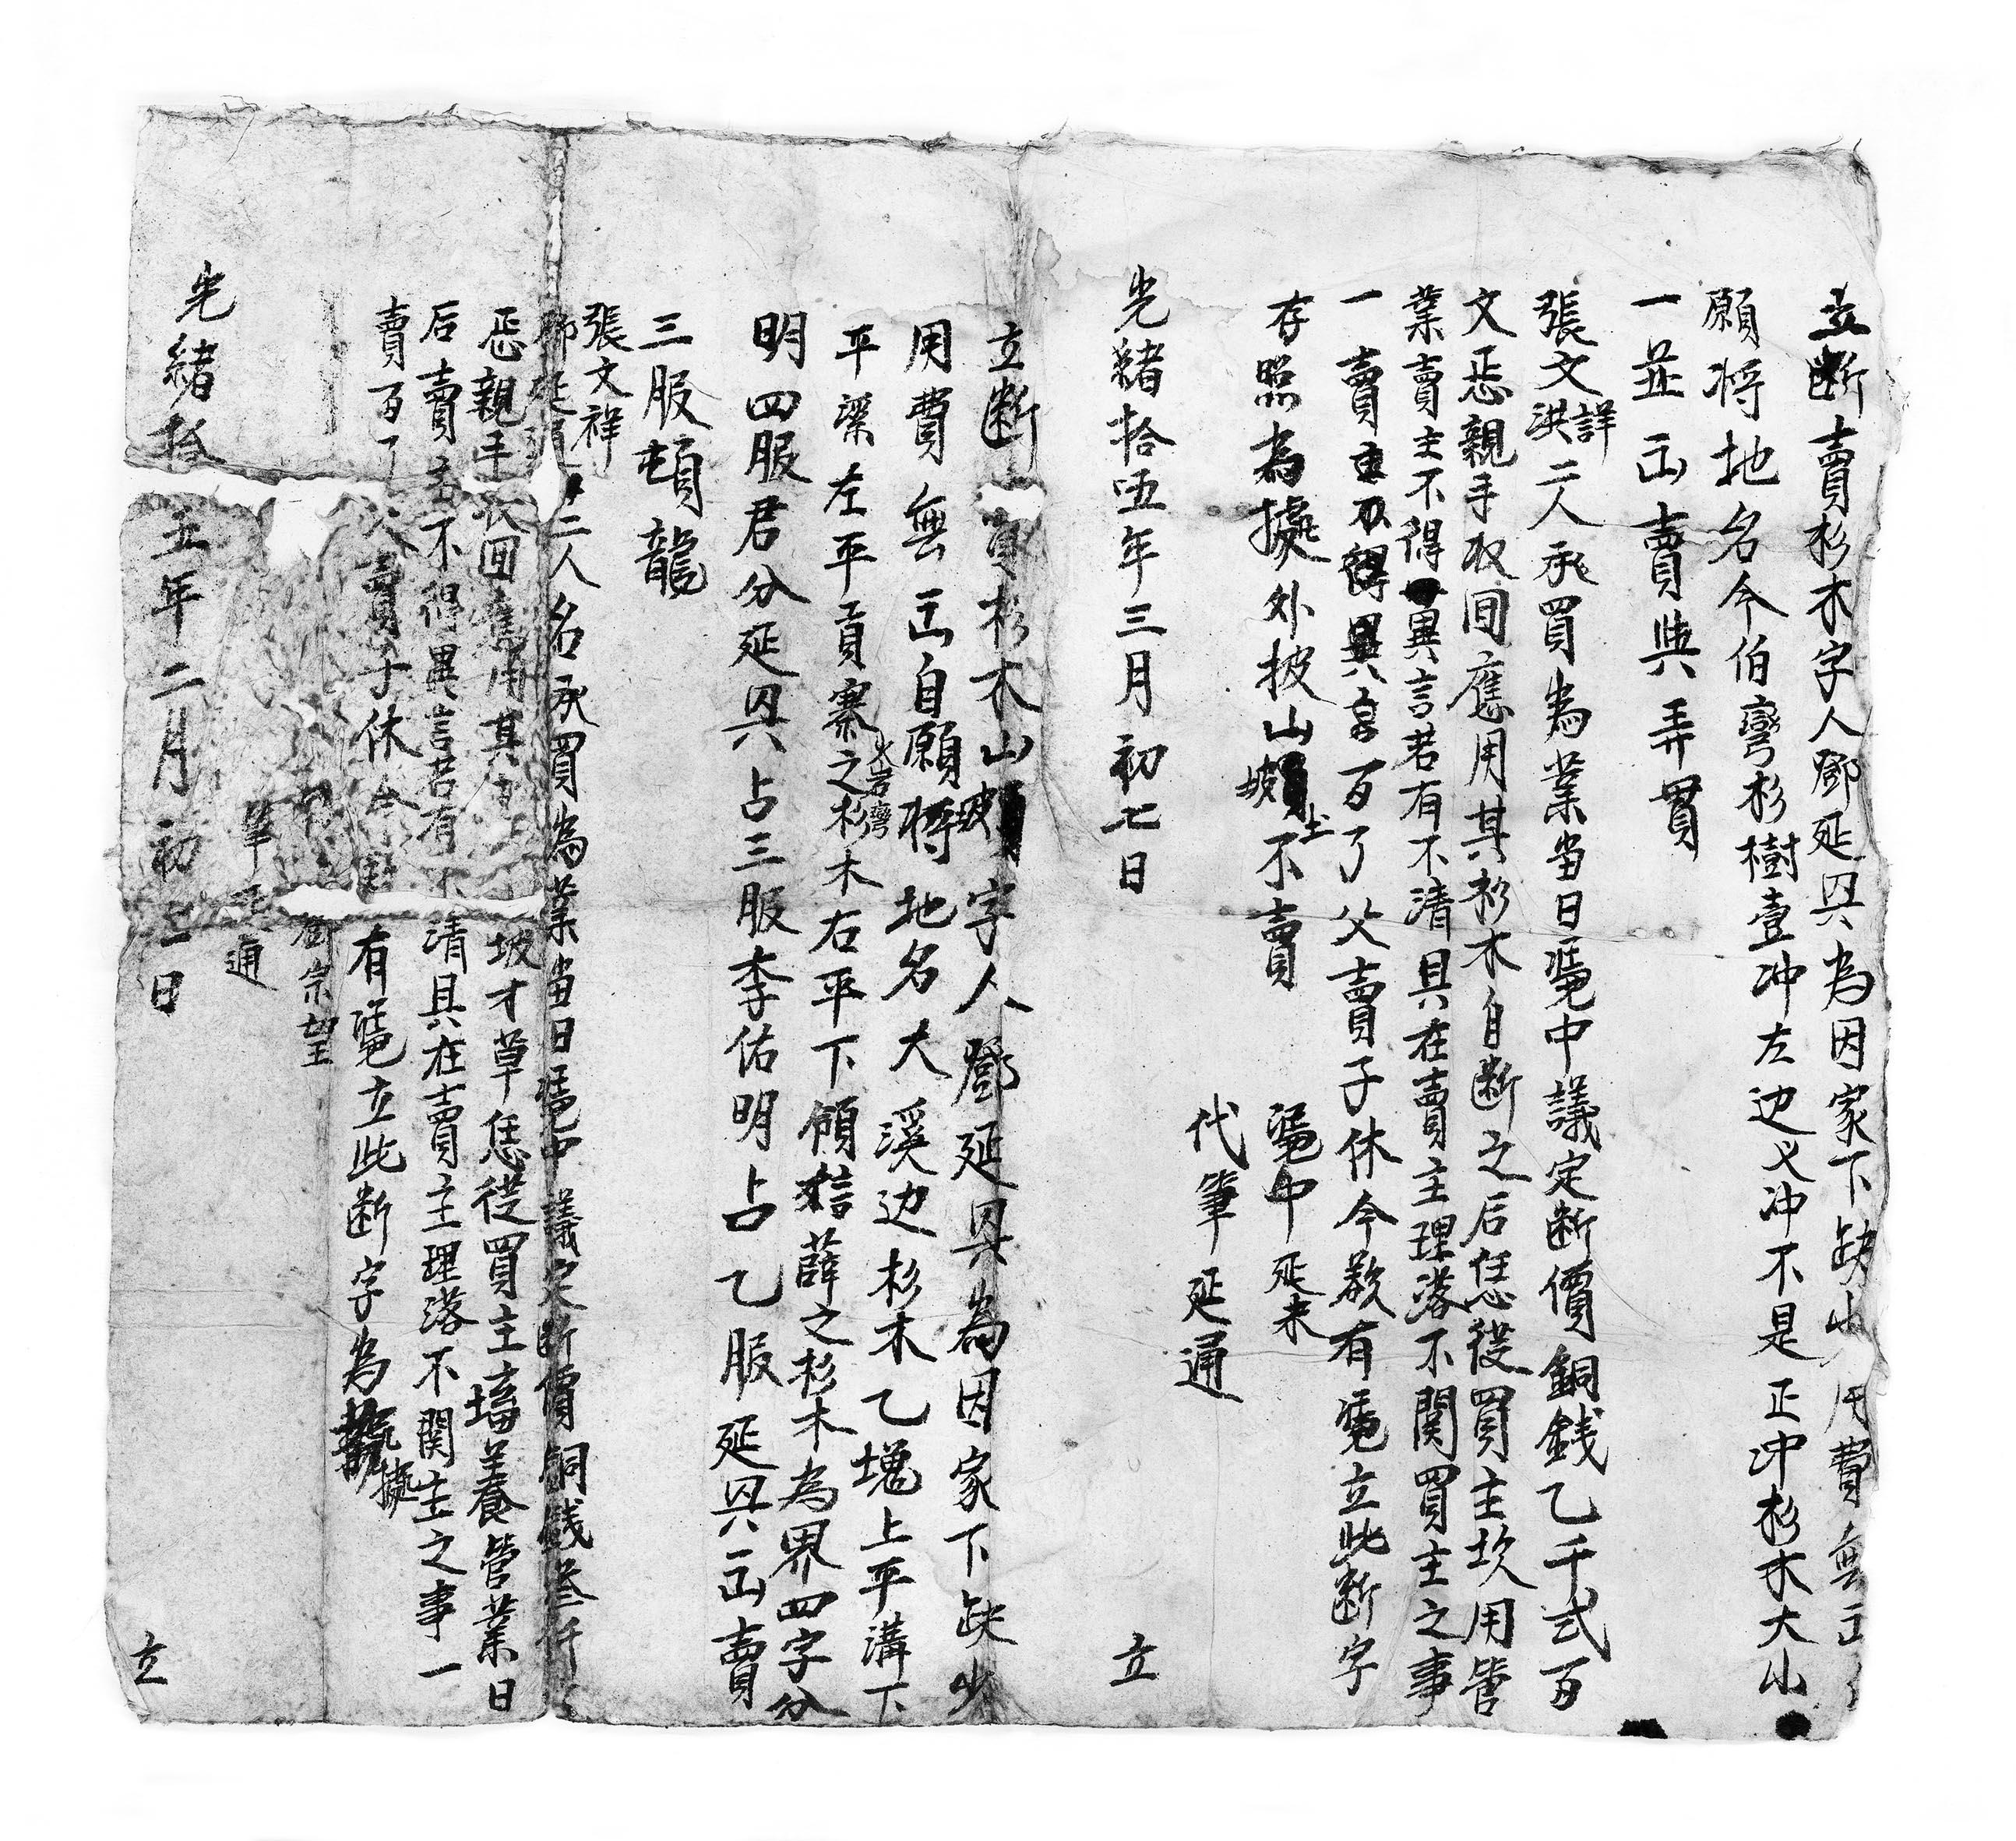 立断賣杉木字人鄧延具為因家下缺少用費無
願將地名今伯灣杉樹壹冲左边义冲不是正冲杉木大小
一並出賣與弄貫
張文詳洪二人承買為業当日凴中議定断價銅錢乙千弍百
文恁親手収回應用其杉木自断之后恁從買主坎用管
業賣主不得異言若有不清具在賣主理落不関買主之事
一賣百了父賣子休今欲有凴立此断字
存照為據外披山坡土不賣
凴中延未
代筆延通
光緒拾伍年三月初七日 立
立断賣杉木山坡字人鄧延具為因家下缺少
用費無出自願將地名大溪边杉木乙塊上平溝下
平梁左平貢寨之杉木右平下領薛之杉木為界四字分
大岩灣
明四服君分延具占三服李佑明占乙服延具出賣
三服頓龍
張文祥
二人名承買為業当日凴中議定断價銅錢叁仟
恁親手收回應用其坡才草恁從買主培養管業日
后賣主不得異言若有不清具在賣主理落不関主之事一
賣百了父賣子休今有凴立此断字為據
中 宗望
筆延通
光緒拾五年二月初二日 立